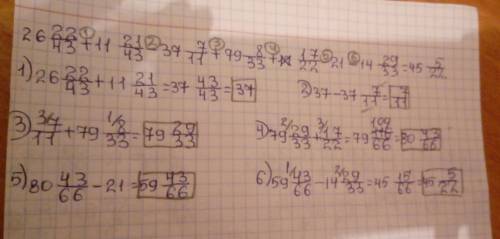 26 22/43 + 11 21/43 - 37 7/11 + 79 8/33 + 17/22 - 21 - 14 29/33 = 45 5/22
1) 26 22/43 + 11 21/43 = 37 43/43 = 37
2) 37 - 37 7/11 = 7/11
3) 7/11 + 79 8/33 = 79 29/33
4) 79 29/33 + 17/22 = 79 109/66 = 80 43/66
5) 80 43/66 - 21 = 59 43/66
6) 59 43/66 - 14 29/33 = 45 15/66 = 45 5/22